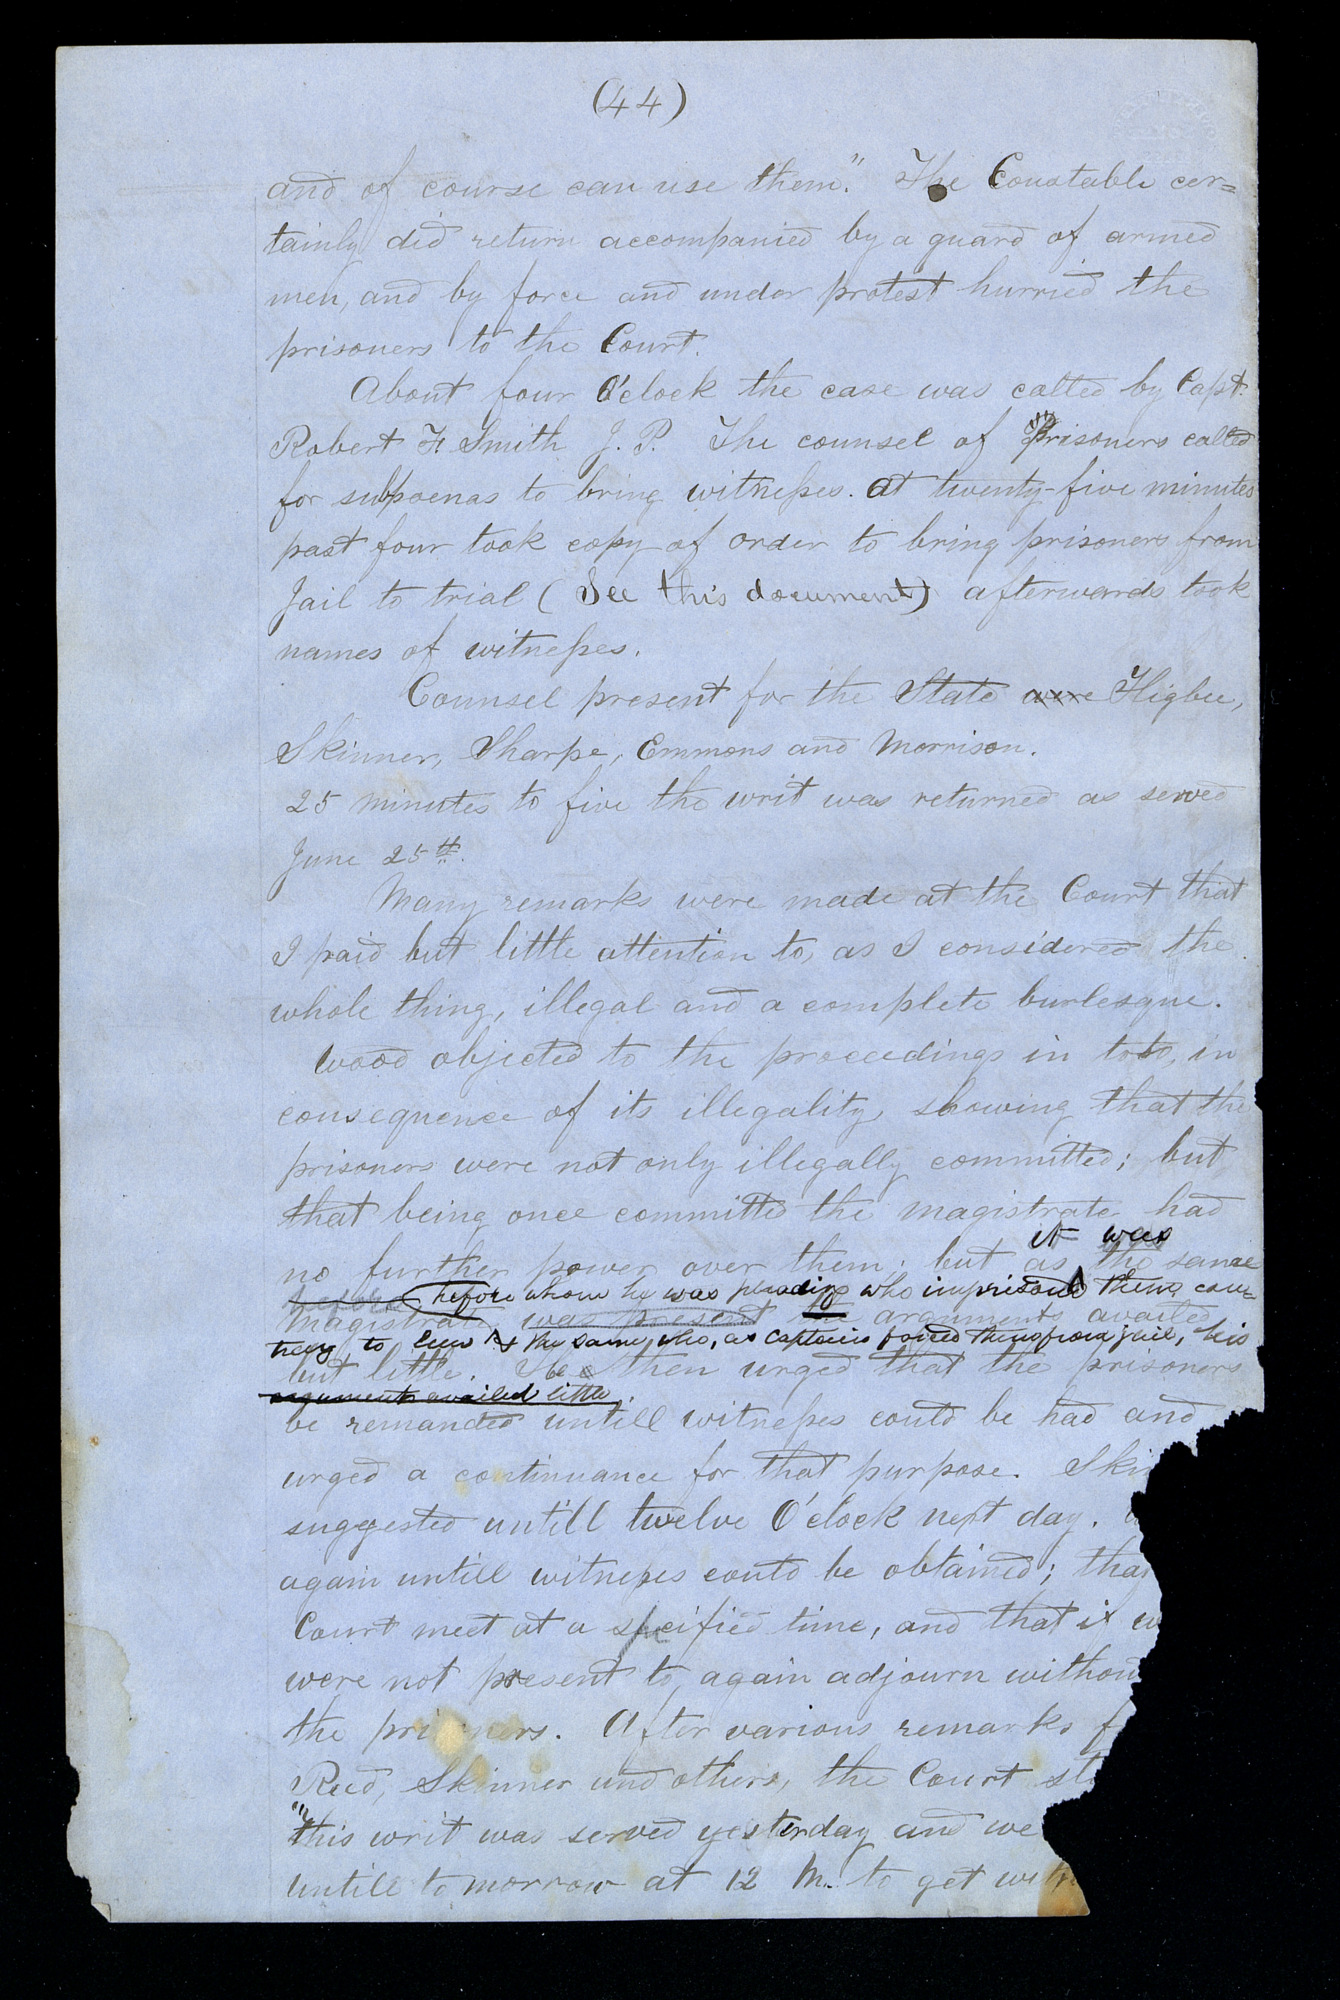 (44)
and of course can use them." The Constable cer=
tainly did return accompanied by a guard of armed
men, and by force and under protest hurried the
prisoners to the Court.
About four O'clock the case was called by Capt.
Robert F. Smith J. P. The counsel of Prisoners called
for subpoenas to bring witnesses. at twenty-five minutes
past four took copy of order to bring prisoners from
Jail to trial (See this document) afterwards took
names of witnesses.
Counsel present for the State were Higbee,
Skinner, Sharpe, Emmons and Morrison.
25 minutes to five the writ was returned as served
June 25th.
Many remarks were made at the Court that
I paid but little attention to, as I considered the
whole thing, illegal and a complete burlesque.
Wood objected to the proceedings in toto, in
consequence of its illegality, showing that the
prisoners were not only illegally committed; but
that being once committed the magistrate had
it was
no further power over them; but as the same
before before whom he was pleading who imprisoned them con=
magistrate was present the arguments availed
trary to law & the same who, as Captain forced them from jail, his
but little. He then urged that the prisoners
arguments availed little.
be remanded untill witnesses could be had and
urged a continuance for that purpose. Ski
suggested untill twelve O'clock next day.
again untill witnesses could be obtained; tha
Court meet at a specified time, and that if w
were not present to again adjourn without
the pri ners. After various remarks f
Reed, Skinner and others, the Court st
"this writ was served yesterday and we
untill tomorrow at 12 M. to get witn